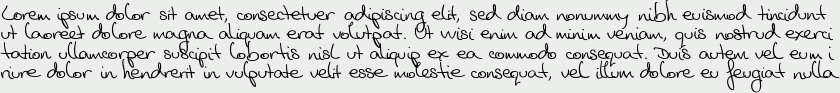 Lorem ipsum dolor sit amet, consectetuer adipiscing elit, sed diam nonummy nibh euismod tincidunt
ut laoreet dolore magna aliquam erat volutpat. Ut wisi enim ad minim veniam, quis nostrud exerci
tation ullamcorper suscipit lobortis nisl ut aliquip ex ea commodo consequat. Duis autem vel eum i
riure dolor in hendrerit in vulputate velit esse molestie consequat, vel illum dolore eu feugiat nulla